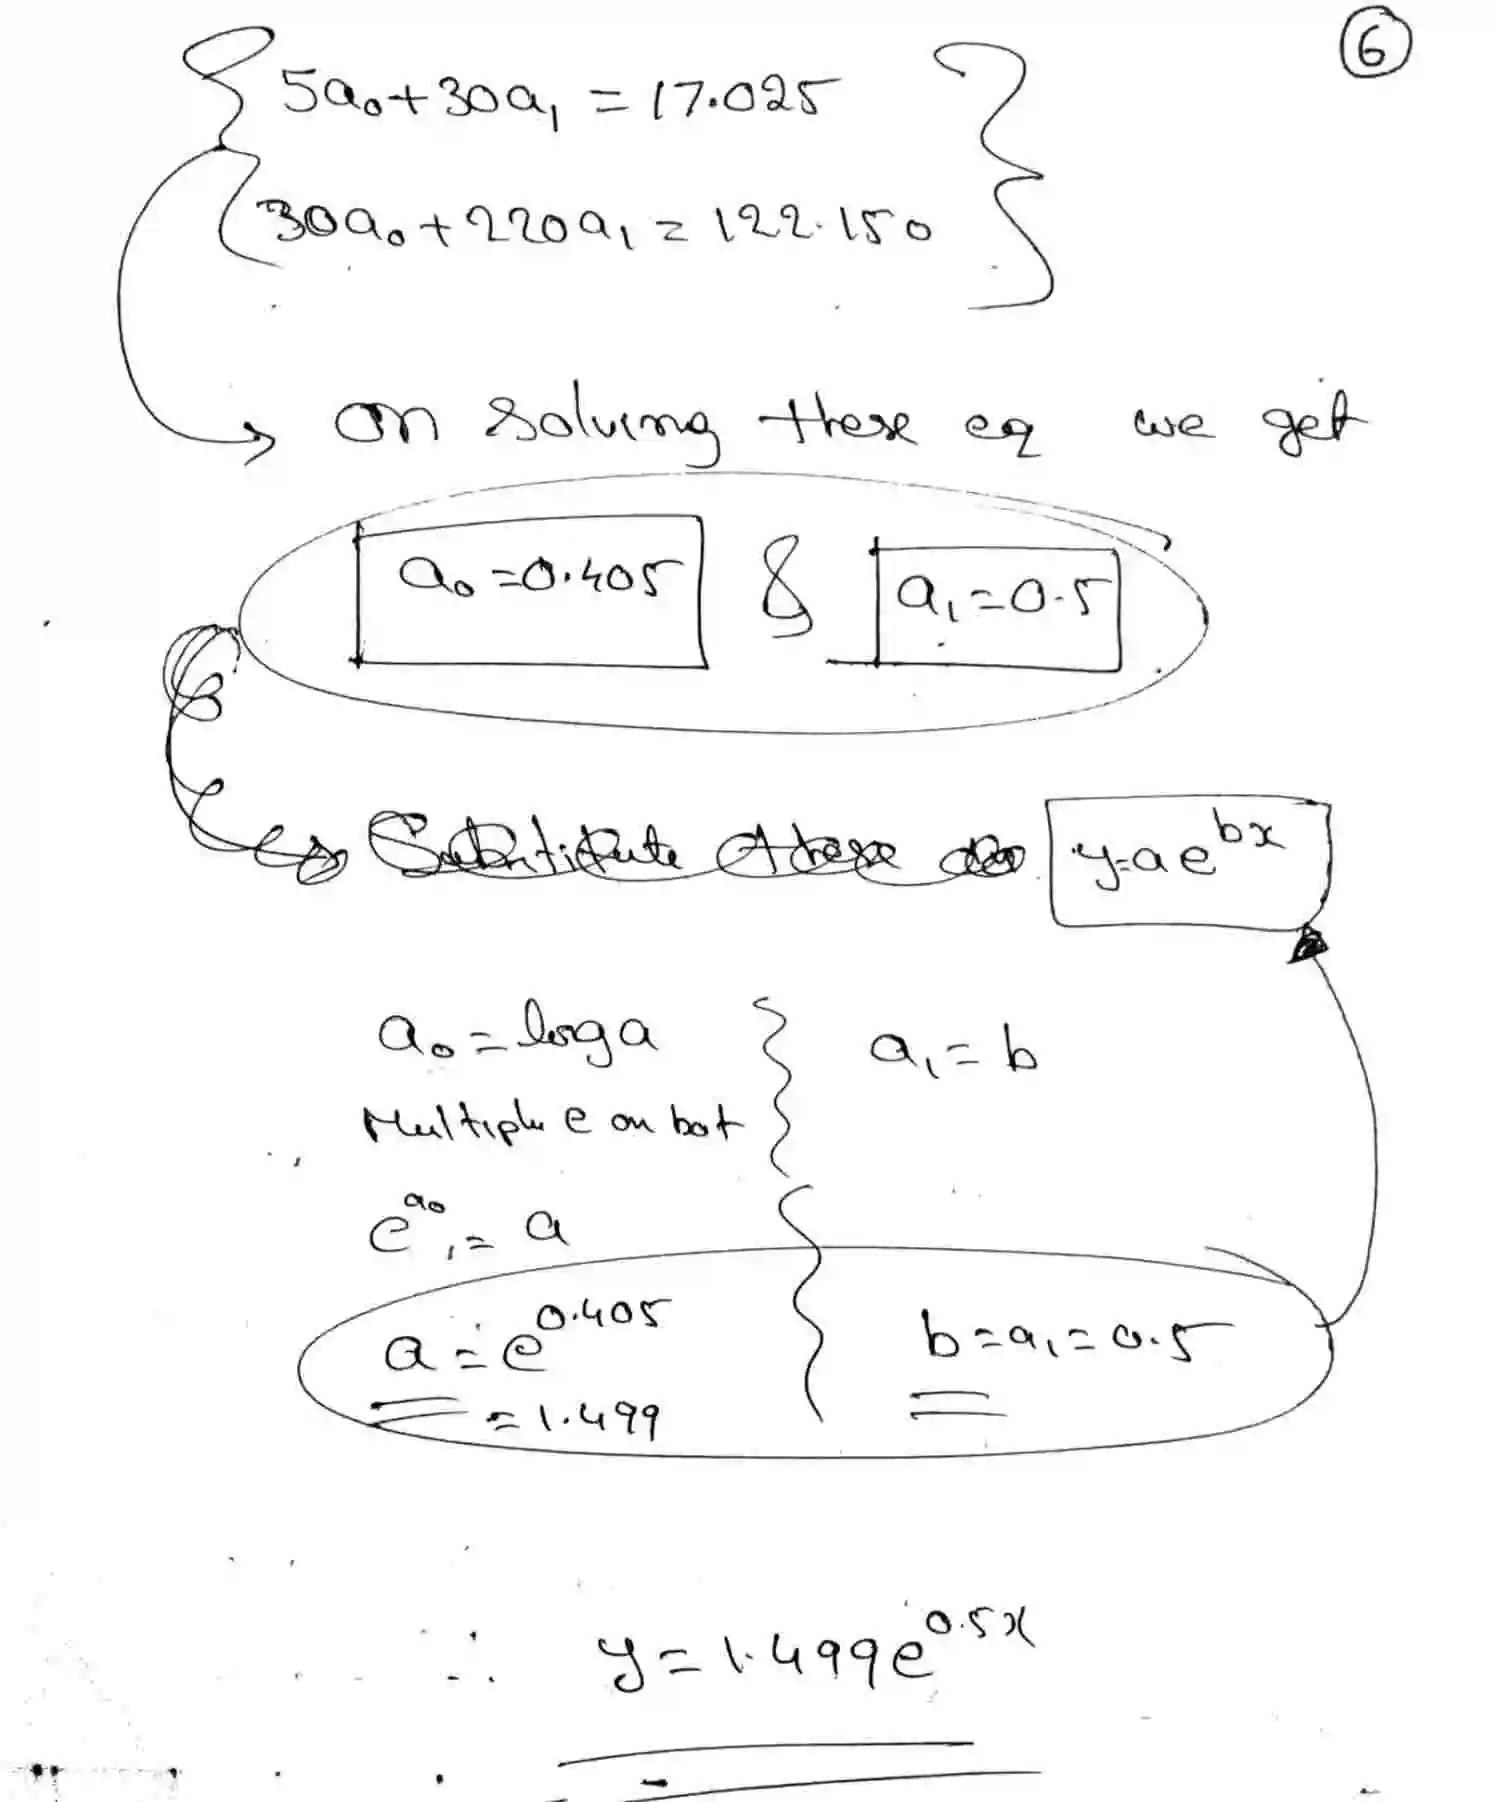 6
5a₀+30a₁ = 17.025
30a₀+220a₁ = 122.150
on solving these eq we get
a₀=0.405 & a₁=0.5
y=ae^bx
a₀=log a
a₁=b
Multiple e on bot
e^a₀ = a
a=e^0.405
=1.499
b=a₁=0.5
∴ y=1.499e^0.5x